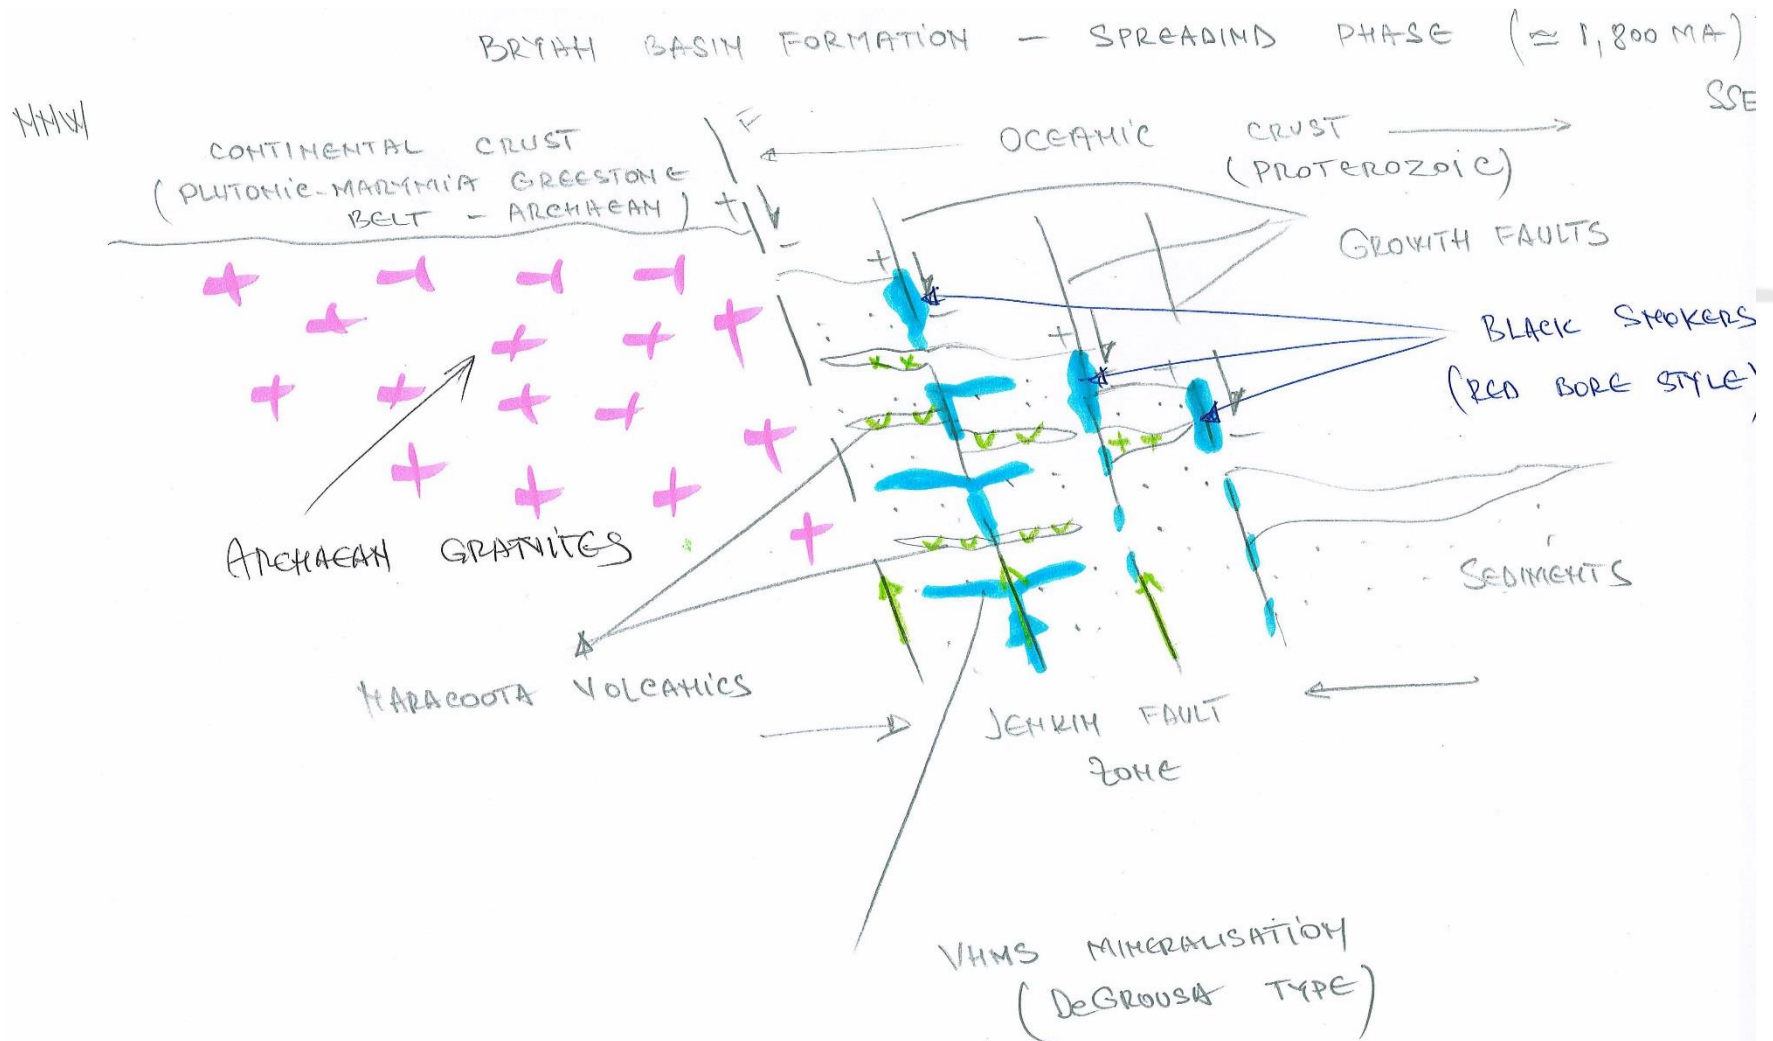 BRYAH BASIN FORMATION - SPREADIND PHASE (≃ 1,800 MA)
NNW
SSE
CONTINENTAL CRUST
(PLUTONIC-MARYMIA GREESTONE
BELT - ARCHAEAN)
F
OCEANIC CRUST
(PROTEROZOIC)
GROWTH FAULTS
BLACK SMOKERS
(RED BORE STYLE)
ARCHAEAN GRANITES
SEDIMENTS
NARACOOTA VOLCANICS
JENKIN FAULT
ZONE
VHMS MINERALISATION
(DeGROUSA TYPE)